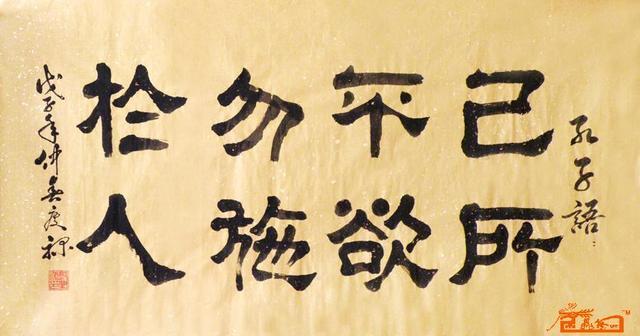 孔子語
己所
不欲
勿施
於人
戊子年仲春慶禄